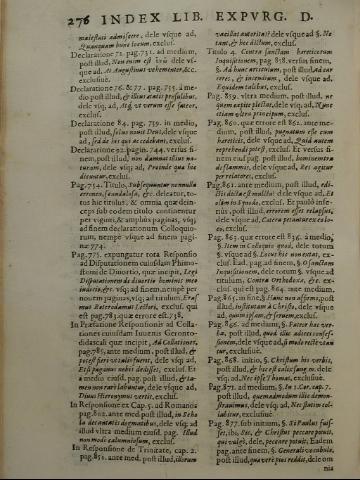 276 INDEX LIB. EXPVRG. D.
maiestati admisere, dele vsque ad,
Quanquam hunc locum, exclus.
Declaratione 72. pag. 731. ad medium,
post illud, Non enim est dele vs-
que ad, At Augustinus vehementer, &c.
exclusiuè.
Declaratione 76. & 77. pag. 735. à me-
dio post illud,
dele vsq; ad, exclus.
Declaratione 84. pag. 739. in medio,
post illud, solus nouit Deus, dele vsque
ad, sed de his qui accedunt, exclus.
Declaratione 92. pagin. 744. versus fi-
nem, post illud, non damnat illius na-
turam, dele vsq; ad, Proinde qua hic
dicuntur, exclus.
Pag. 754. Titulo, Subsequuntur nonnulla
erronea, scandalosa, &c. deleatur, to-
tus hic titulus, & omnia quæ dein-
ceps sub eodem titulo continentur
per viginti, & ampliùs paginas, vsq;
ad finem declarationum Colloquio-
rum, nempe vsque ad finem pagi-
næ 774.
Pag. 775. expungatur tota Responsio
ad Disputationem cuiusdam Phimo-
stomi de Diuortio, quæ incipit, Legi
Disputationem de diuortio hominis me
&c. vsq; ad finem, nempe per
nouem paginas, vsq; ad titulum, Eras-
mus Roterodamus Lectori, exclus. qui
est pag. 783. quæ errore est. 738.
In Præfatione Responsionis ad Colla-
tiones cuiusdam Iuuenis Geronto-
didascali quæ incipit, Ad Collationes,
pag. 785. ante medium, post illud, &
potest fieri vt aliis fuerit, dele vsq; ad,
Etsi pugnans nobis dedisset, exclus. Et
à medio eiusd. pag. post illud, & ta-
men interrarii labitur, dele vsque ad,
Diuus Hieronymus vertit, exclus.
In Responsione ex Cap. 5. ad Romanos
pag. 802. ante med. post illud, in Scho
la decantatis dogmatibus, dele vsq; ad
illud vltra medium eiusd. pag. Illud
non modo calumniosum, exclus.
In Responsione de Trinitate, cap. 2.
pag. 851. ante med. post illud, illorum
vacillat autoritas? dele vsque ad §. No
tant, & hoc dictum, exclus.
Titulo 4. Contra sanctam hæreticorum
Inquisitionem, pag. 858. versus finem,
§. Ad hunc articulum, post illud Ad cor
reres, & intendium, dele vsque ad,
Equidem talibus, exclus.
Pag. 859. vltra medium, post illud, ne
quem captiè plectat, dele vsq; ad, Nunc
etiam vltra principum, exclus.
Pag. 860. quæ errore est 862. ante me-
dium, post illud, pugnatum esse cum
hæreticis, dele vsque ad, Quid autem
reprehendi potest, exclus. Et versus fi-
nem eiusd. pag. post illud, hominem tra
di flammis, dele vsque ad, Res agitur
per relatores, exclus.
Pag. 861. ante medium, post illud, edi-
ctis dictis & multis? dele vsque ad, Et
olim in Synodo, exclus. Et paulò infe-
riùs, post illud, errorem esset relapsus,
dele vsque ad, exclus.
Pag. 865. quæ errore est 836. à medio,
§. Item in Colloquio quod, dele totum
§. vsque ad §. Locus hic non extat, ex-
clus. Ead. pag. ad finem, §. O sanctam
Inquisitionem, dele totum §. vsque ad
titulum, Contra Orthodoxa, &c. ex-
clus. qui est pag. 864. ante medium.
Pag. 865. in fine, § Hanc non asserui, post
illud, in sanctam à Christo, dele vsque
ad, quam ipsam, & seruam, exclus.
Pag. 866. ad medium, §. Fateor hæc ver-
ba, post illud, quod illis adiecti confes-
sionem, dele vsque ad, exclusiuè.
Pag. 868. initio, §. Christum his verbis,
post illud, & hoc est calix sang. m. dele
vsq; ad, Nec ipse Thomas, exclusiuè.
Pag. 872. ad medium, §. In 1. Cor. cap. 7.
post illud, quemadmodum illic demon-
strauimus, dele vsq; ad, Nec statim col-
labitur, exclusiuè.
Pag. 877. sub initium, §. Si Paulus fuis-
set, ibi, Sed, & Christus peccare potuit,
qui vulgò, dele, peccare potuit; Eadem
pag. ante finem, §. Generali vocabulo,
post illud, qua verè pius reddit, dele om
nia